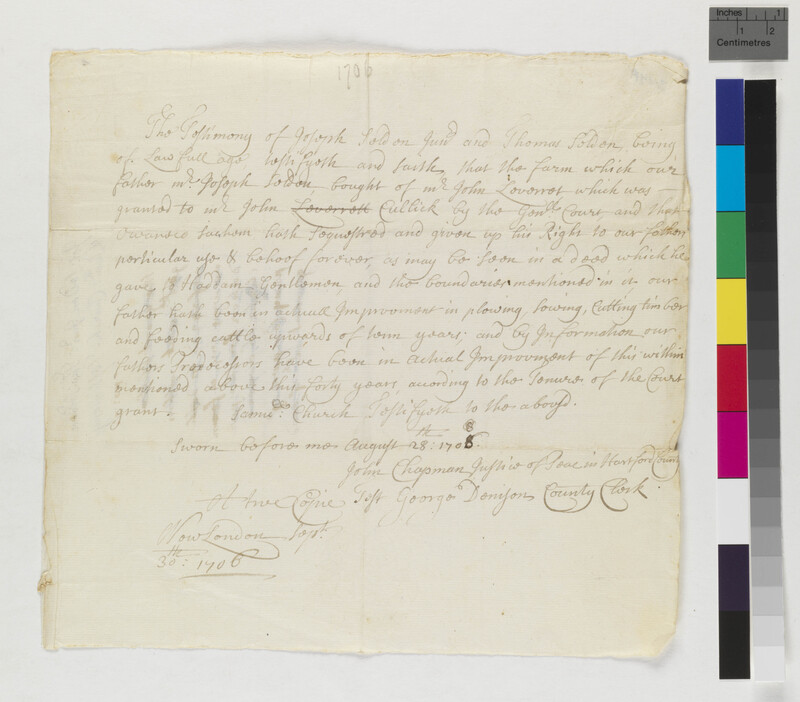 1706
The Testimony of Joseph Selden Junr and Thomas Selden, being
of Lawfull age testifyeth and saith, that the farm which our
father mr Joseph Selden, bought of mr John Leverret which was
granted to mr John Leverrett Cullick by the Genll Court and that
Owaneco sachem hath sequestred and given up his Right to our fathers
perticular use & behoof forever, as may be seen in a deed which he
gave to Haddam Gentlemen and the boundaries mentioned in it our
father hath been in actuall Improvment in plowing, sowing, Cutting timber
and feeding cattle upwards of tenn years; and by Information our
fathers Predecessors have been in Actual Improvment of this within
mentioned above this forty years acording to the Tenure of the Court
grant. Samuel Church Testifyeth to the abovsd.
Sworn before me August 28th: 1706.
John Chapman Justice of Peac in Hartford County
A true Copie Test George Denison County Clerk
New London Sept
30th: 1706
Inches 1
1 2
Centimetres